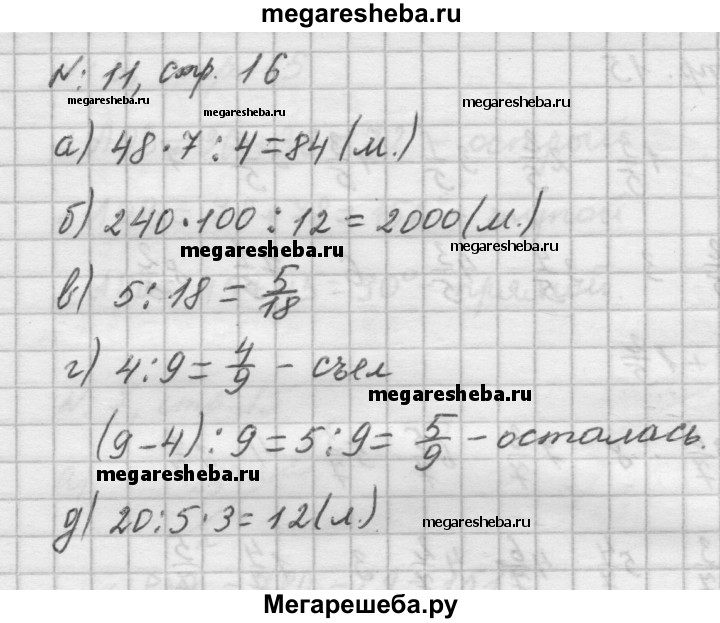 megaresheba.ru
N: 11, стр. 16
megaresheba.ru megaresheba.ru megaresheba.ru
а) 48 · 7 : 4 = 84 (м.)
б) 240 · 100 : 12 = 2000 (м.)
megaresheba.ru megaresheba.ru
в) 5 : 18 = 5/18
г) 4 : 9 = 4/9 - съел
megaresheba.ru
(9 - 4) : 9 = 5 : 9 = 5/9 - осталась.
megaresheba.ru
д) 20 : 5 · 3 = 12 (л.)
megaresheba.ru
Мегарешеба.ру